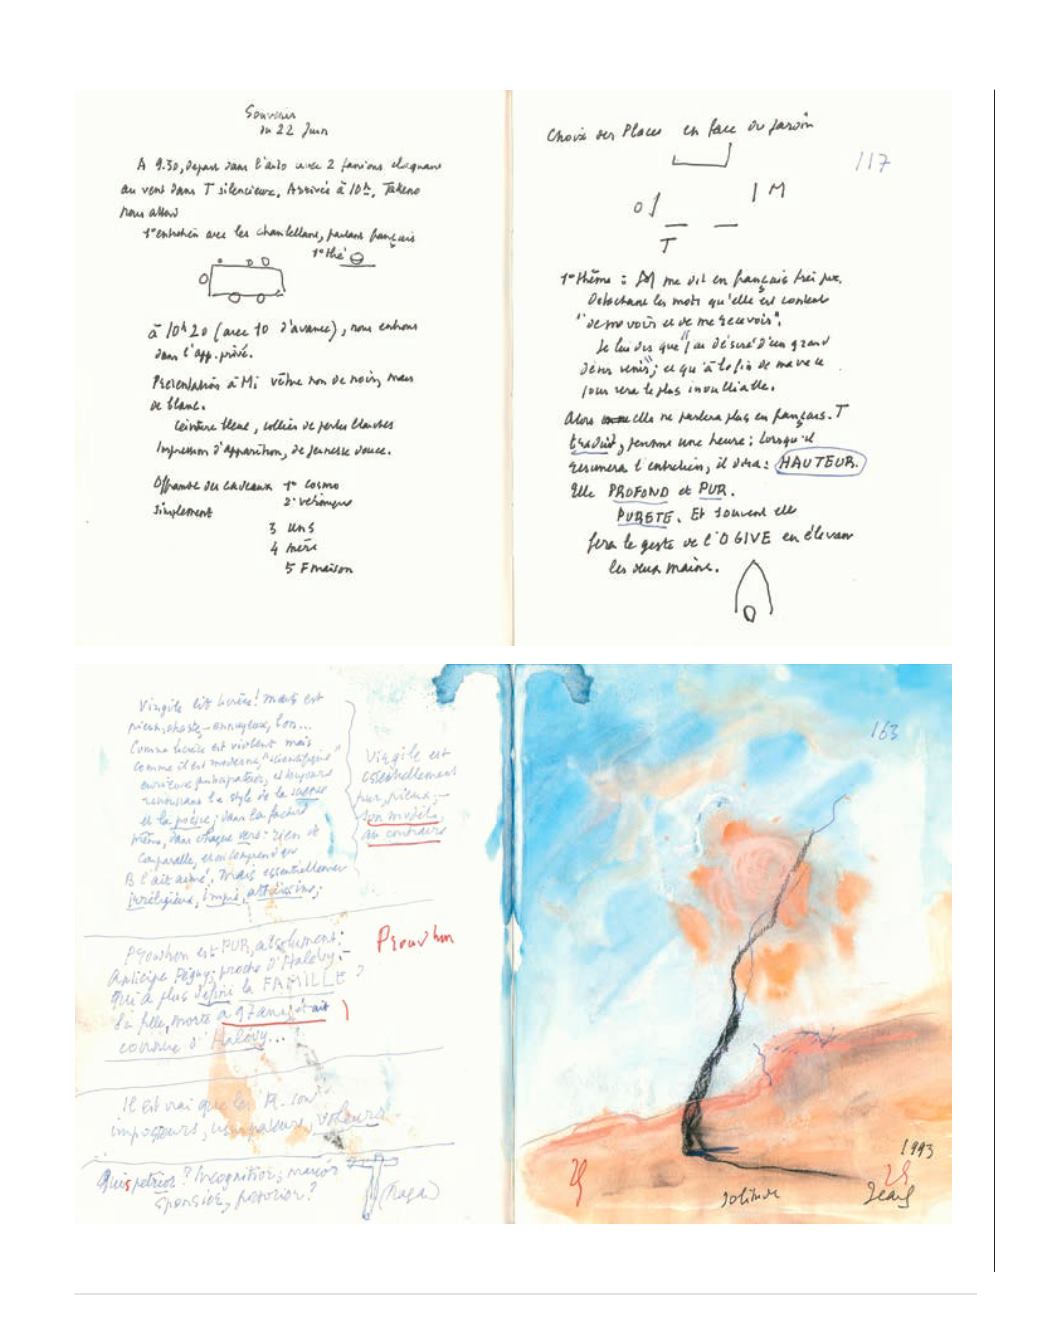 Souvenir
du 22 Juin
A 9.30, départ dans l'auto avec 2 fanions claquant
au vent dans T silencieux. Arrivée à 10h. Takeno
nous attend
1er entretien avec les chambellans, parlant français
1er thé
à 10h20 (avec 10 d'avance), nous entrons
dans l'app. privé.
Présentation à Mi vêtue non de noir, mais
de blanc.
Ceinture bleue, collier de perles blanches
Impression d'apparition, de jeunesse douce.
Offrande des cadeaux 1° Cosmo
simplement 2° véronique
3 uns
4 mère
5 F maison
Choix des Places en face du jardin
117
O M
T
1er thème : M me dit en français très pur.
Détachant les mots qu'elle est contente
"de me voir et de me recevoir".
Je lui dis que "j'ai désiré d'un grand
désir venir"; et qu'à la fin de ma vie ce
jour sera le plus inoubliable.
Alors elle ne parlera plus en français. T
traduit, pendant une heure ; lorsqu'il
résumera l'entretien, il dira : HAUTEUR.
Elle PROFOND et PUR.
PURETE. Et souvent elle
fera le geste de l'OGIVE en élevant
les deux mains.
Virgile lit Lucrèce! mais est
pieux, chaste, – ennuyeux, bon...
Comme Lucrèce est violent mais
comme il est moderne, "scientifique"
et toujours
le style de la
et la poésie ; dans la facture
même, dans chaque vers : rien de
comparable, et on comprend que
B l'ait aimé, mais essentiellement
irréligieux, impie,
Virgile est
essentiellement
pur, pieux, –
son modèle
au contraire
Proudhon est PUR, absolument :
Anticipe Péguy; proche d'Halévy. –
Qui a plus défini la FAMILLE ?
Sa fille, morte à 97 ans, était
cousine d'Halévy...
Proudhon
Il est vrai que les R. sont
imposteurs, usurpateurs, voleurs
Quis petrior? Incognitior;
(Raga)
163
1993
29
25
Solitude
Jean G